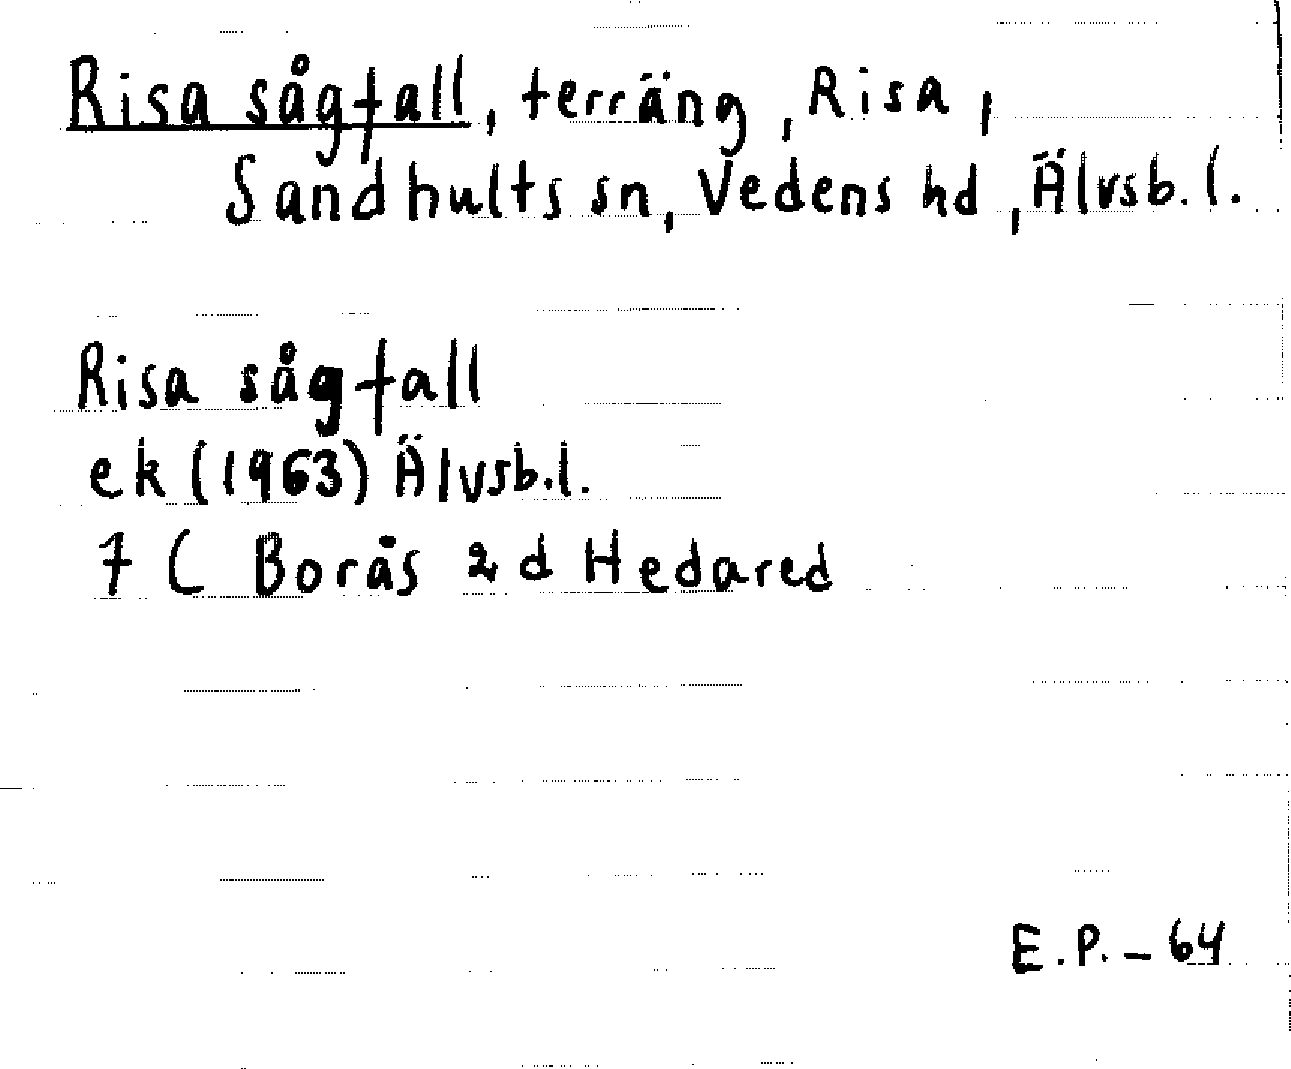 Risa sågfall, terräng, Risa,
Sandhults sn, Vedens hd, Älvsb. l.
Risa sågfall
ek (1963) Älvsb. l.
7 C Borås 2 d Hedared
E.P. – 64